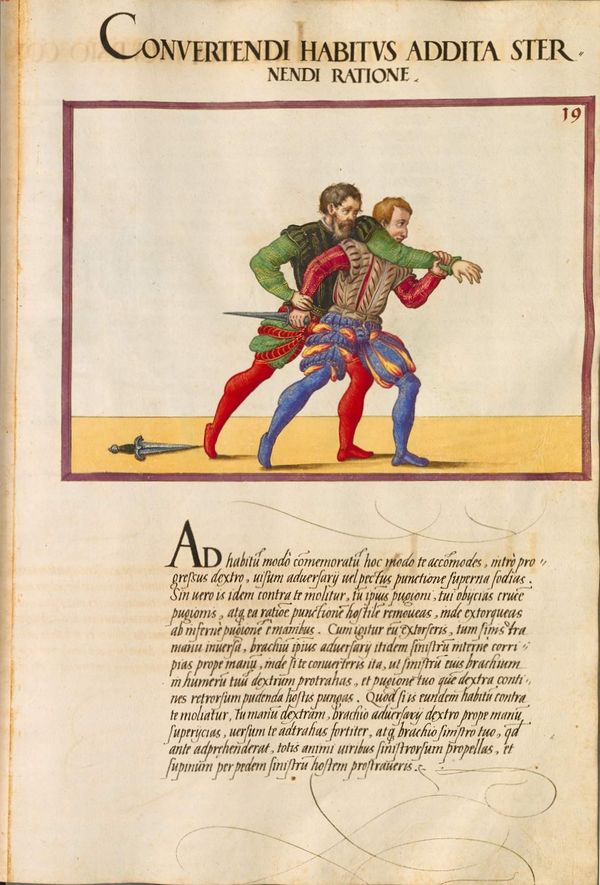 CONVERTENDI HABITVS ADDITA STER
NENDI RATIONE.
19
AD habitũ modò cõmemoratũ hoc modo te accõmodes, intrò pro
gressus dextro, uisum adversarij uel pectus punctione superna fodias.
Sin uero is idem contra te molitur, tu ipius pugioni, tui obijcias cruce
pugionis, atq̃ ea ratiõe punctionẽ hostilẽ remoueas, inde extorqueas
ab infernè pugionẽ è manibus. Cum igitur eũ extorseris, tum sinistra
manu inversa, brachiũ ipius adversarij itidem sinistrũ internè corri
pias prope manũ, inde si te converteris ita, ut sinistrũ eius brachium
in humerũ tuũ dextrum protrahas, et pugione tuo quẽ dextra conti
nes retrorsum pudenda hostis pungas. Quod si is eundem habitũ contra
te moliatur, tu manũ dextram, brachio adversarij dextro prope manũ
superijcias, versum te adtrahas fortiter, atq̃ brachio sinistro tuo, qd
ante adprehenderat, totis animi uiribus sinistrorsum propellas, et
supinum per pedem sinistrũ hostem prostraueris.